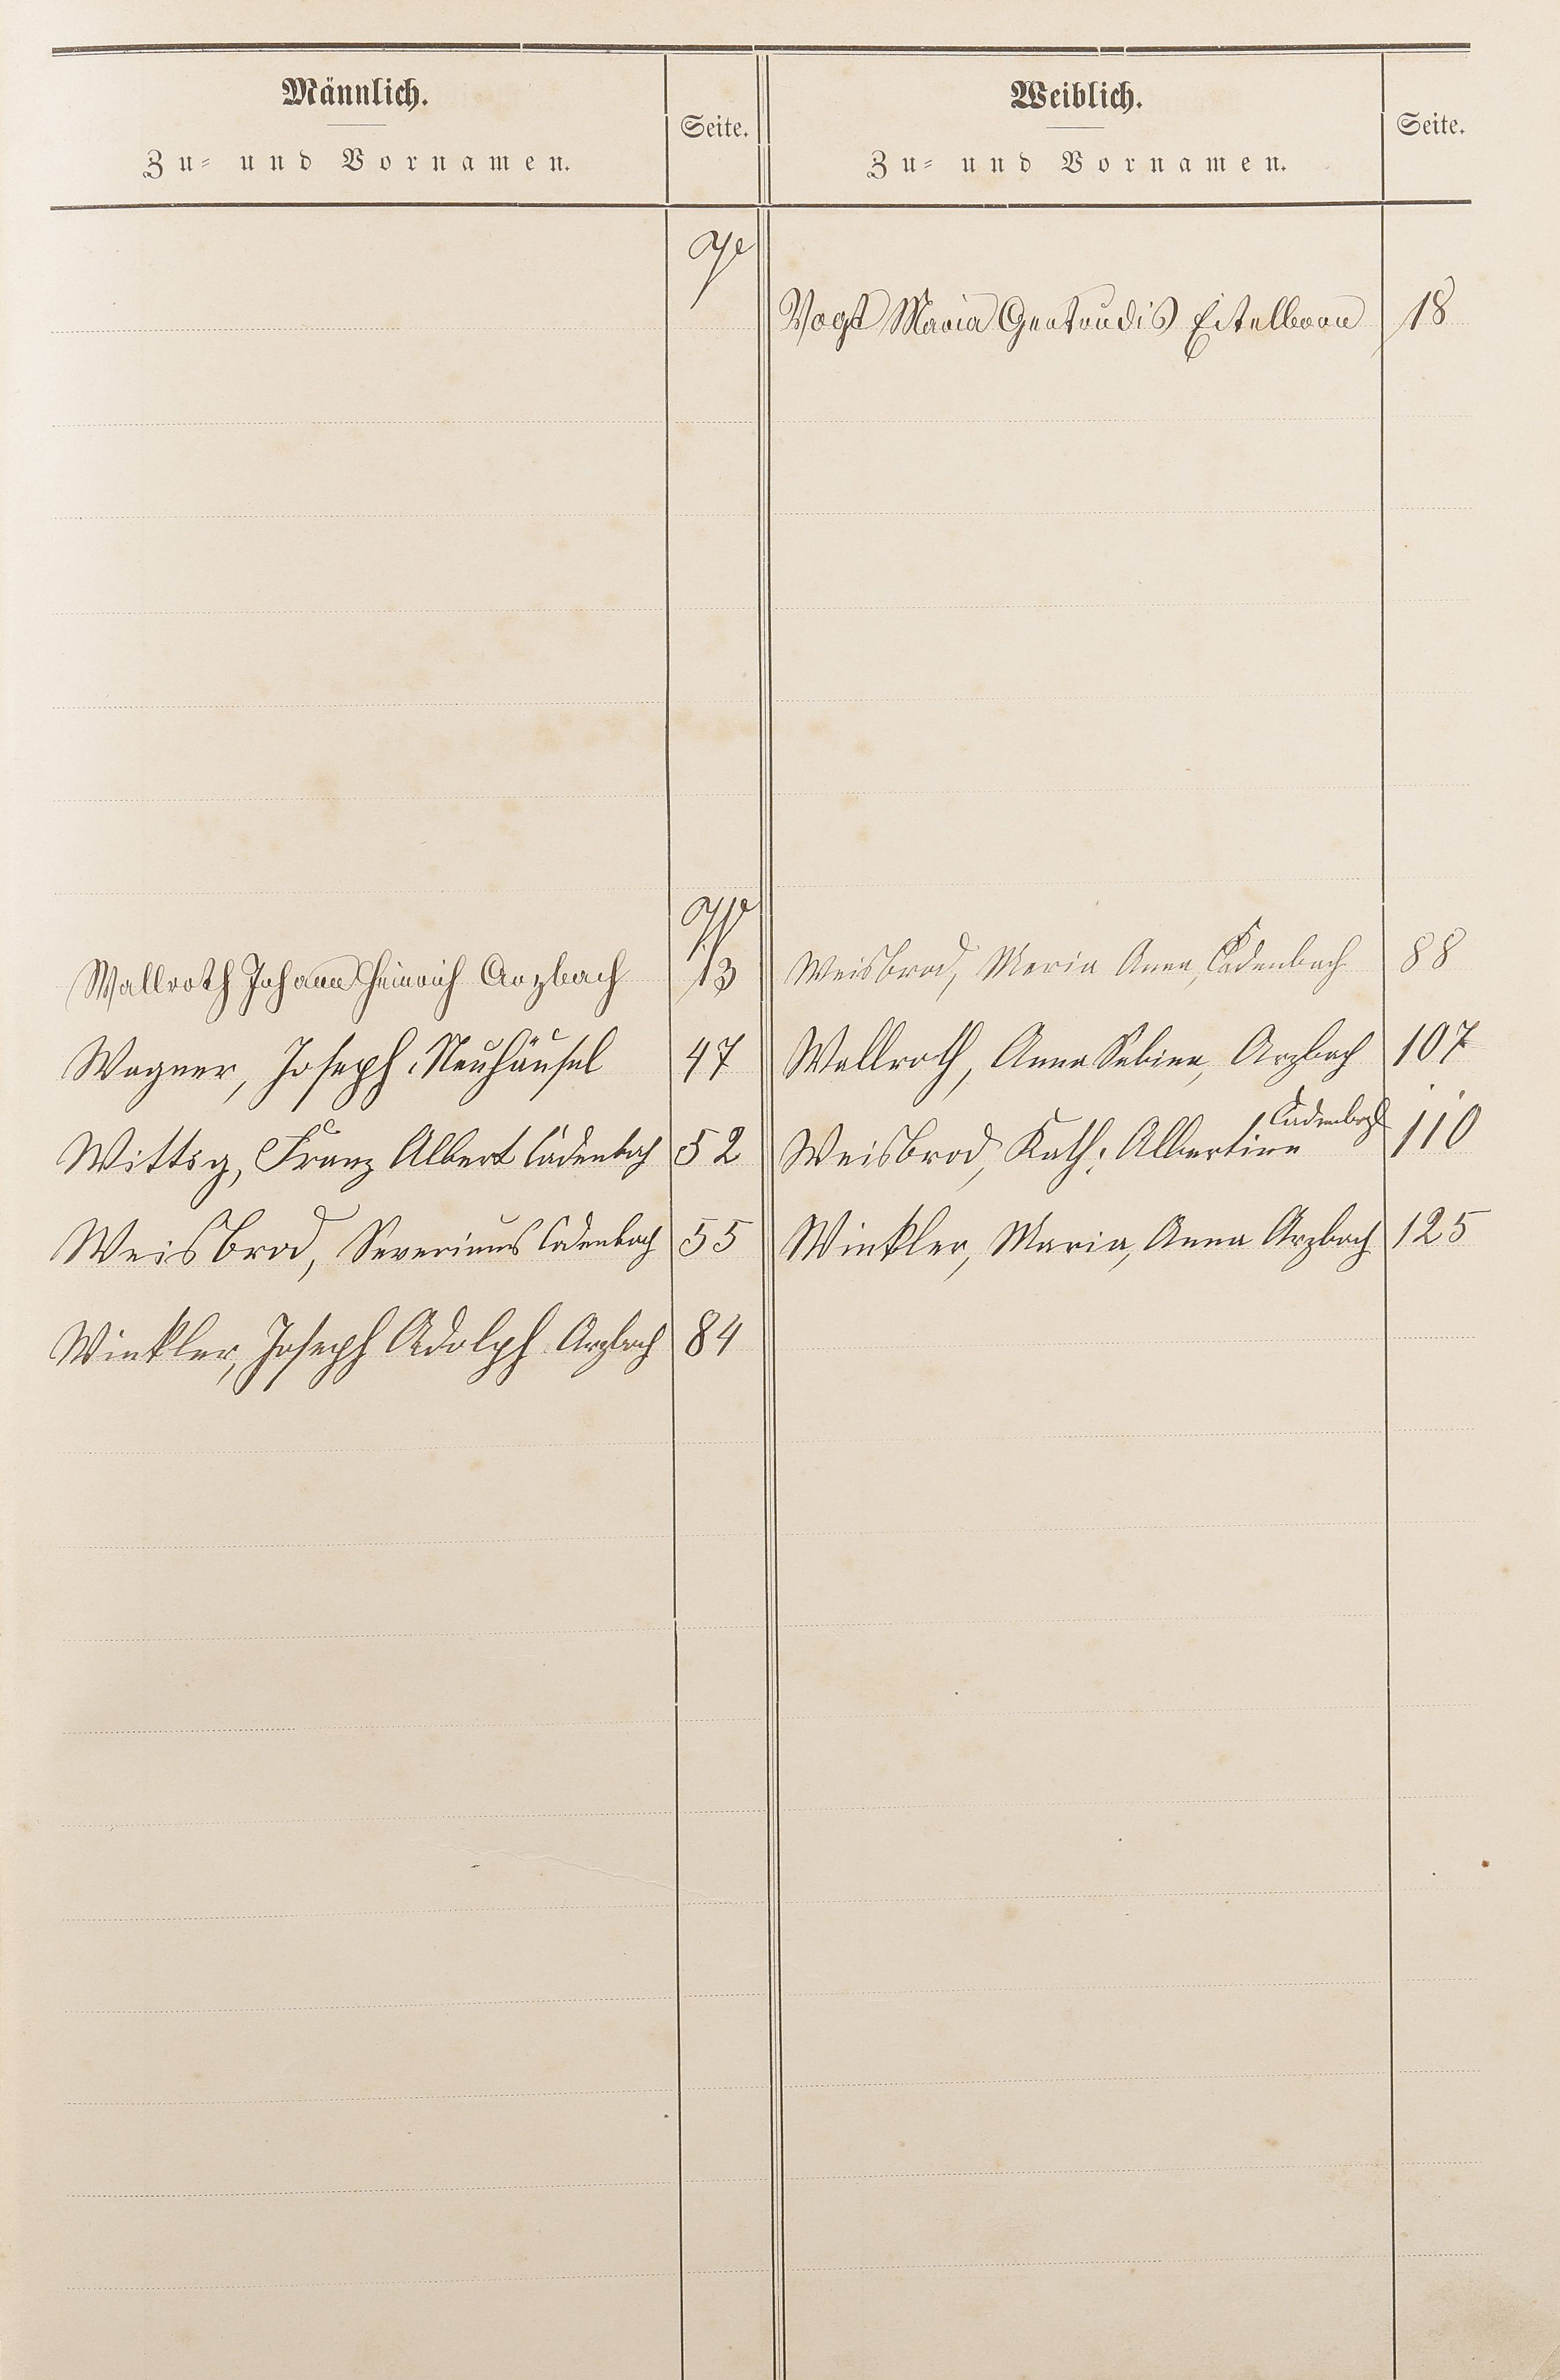 Männlich.
Zu- und Vornamen.
Seite.
Weiblich.
Zu- und Vornamen.
Seite.
V
Vogt Maria Gertrudis Eitelborn 18
W
Wallroth Johann Heinrich Arzbach 13
Weisbrod, Maria Anna, Cadenbach 88
Wagner, Joseph, Neuhäusel 47
Wallroth, Anna Sabina, Arzbach 107
Wittig, Franz Albert Cadenbach 52
Cadenbach
Weisbrod, Kath: Albertine 110
Weisbrod, Severinus Cadenbach 55
Winkler, Maria, Anna Arzbach 125
Winkler, Joseph Adolph Arzbach 84